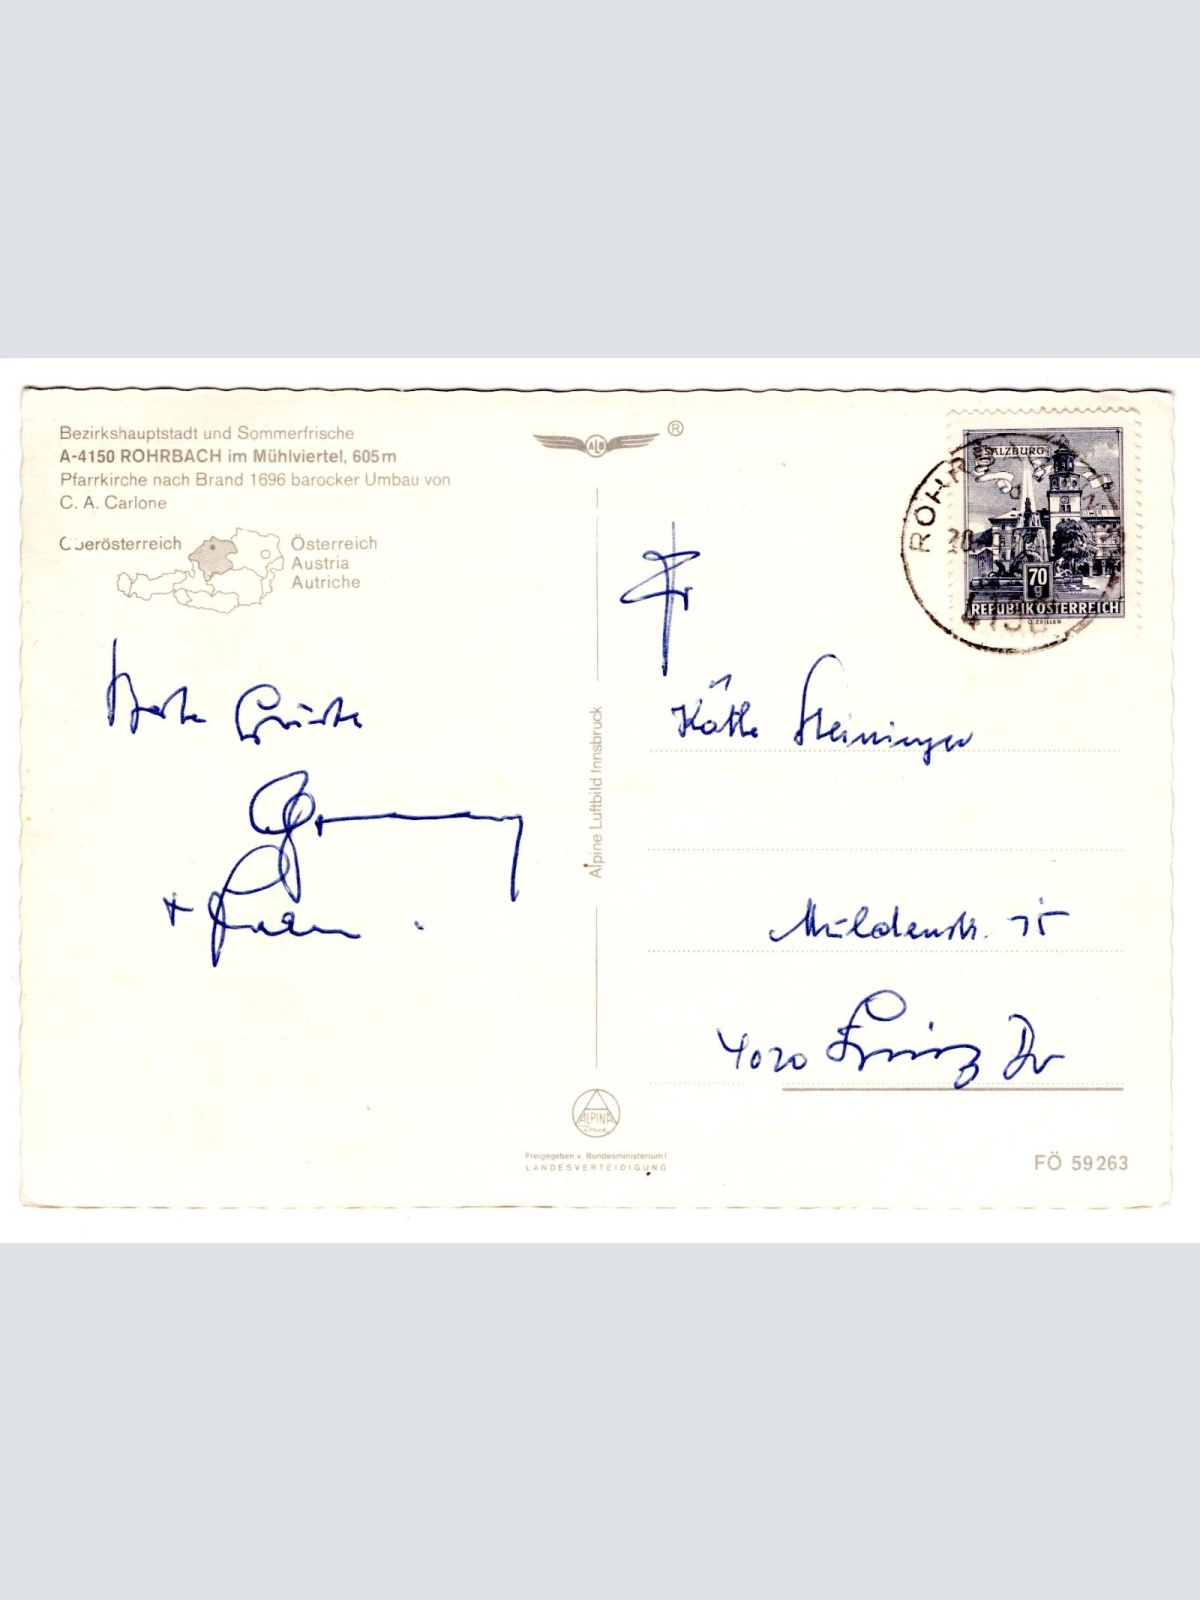 Bezirkshauptstadt und Sommerfrische
A-4150 ROHRBACH im Mühlviertel, 605 m
Pfarrkirche nach Brand 1696 barocker Umbau von
C. A. Carlone
Oberösterreich
Österreich
Austria
Autriche
Beste Grüße
+
ALB
®
Alpine Luftbild Innsbruck
ALPINA
Druck
Freigegeben v. Bundesministerium f.
LANDESVERTEIDIGUNG
SALZBURG
70
g
REPUBLIK ÖSTERREICH
O. ZEILLER
ROHR
20
4150
Fr
Käthe Steininger
15
4020 Linz
FÖ 59263